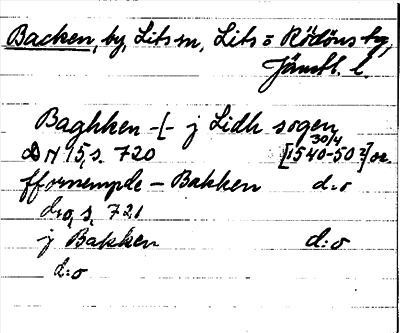 Backen, by, Lits sn, Lits o Rödöns tg,
Jämtl. l.
Baghken -[- j Lidh sogen
30/4
DN 15, s. 720 [1540-50?] or.
ffornempde - Bakken d:o
d:o, s. 721
j Bakken d:o
d:o